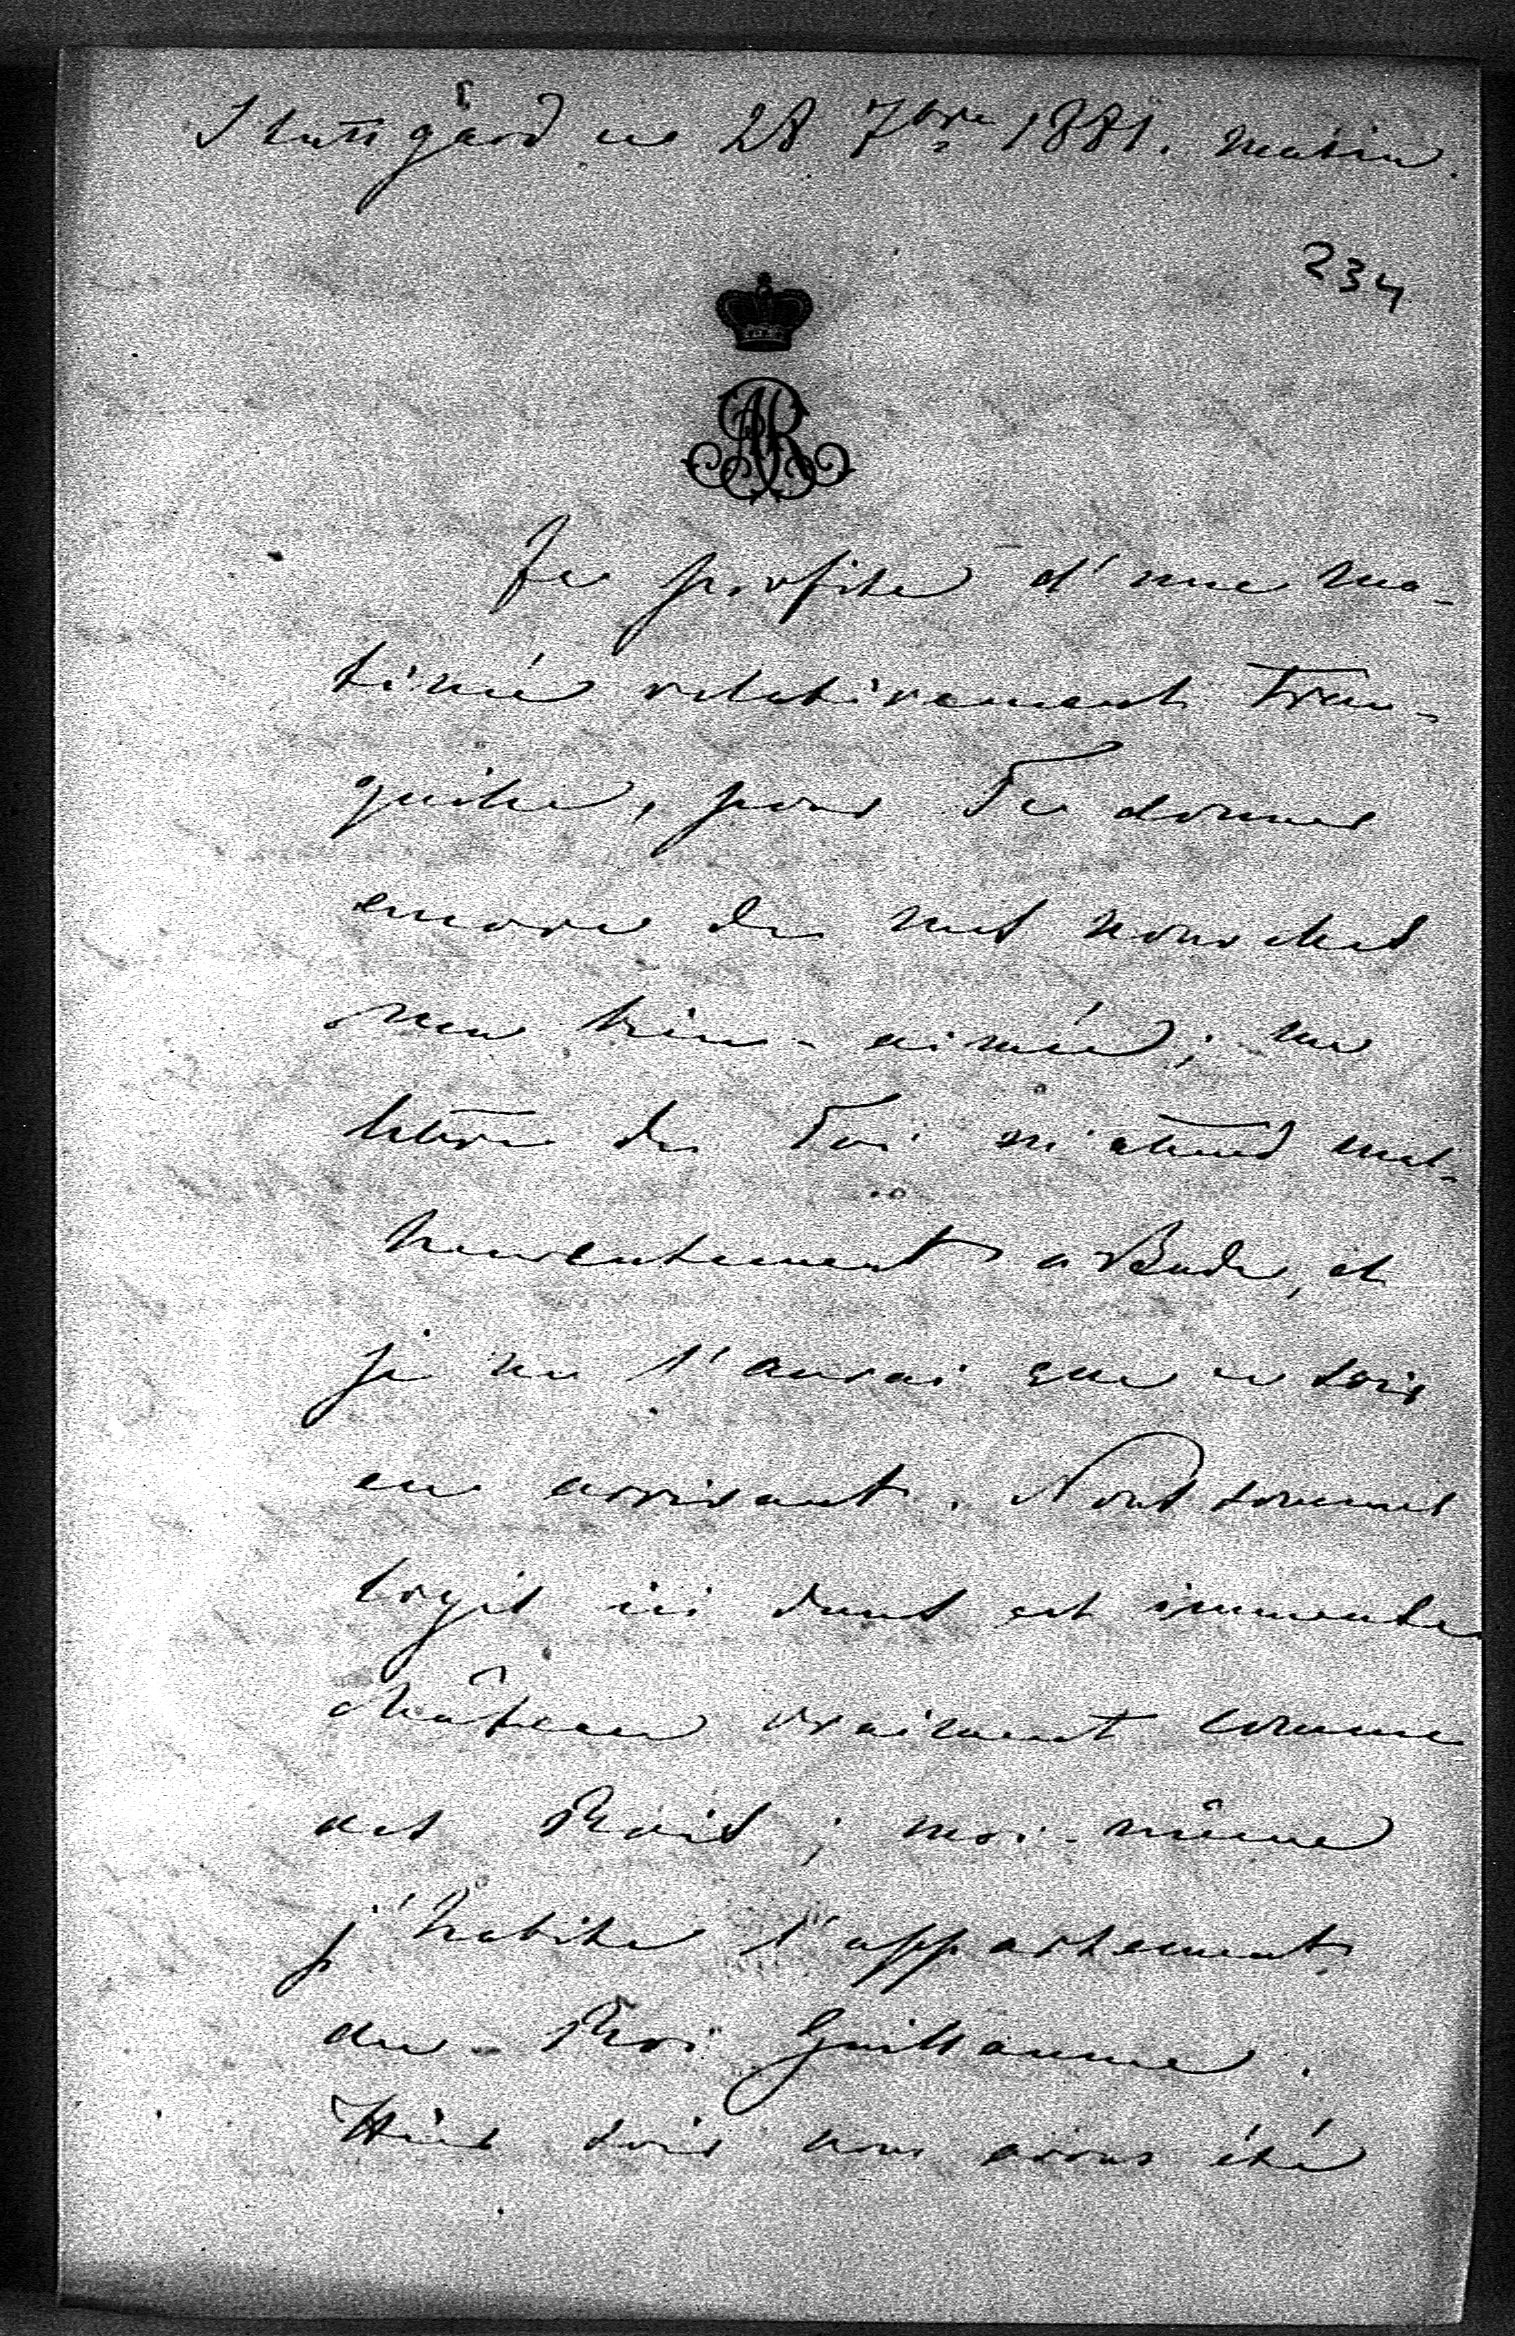 Stuttgard ce 28 7bre 1881. matin.
234
AR
Je profite d'une ma-
tinée relativement tran-
quille, pour Te donner
encore de mes nouvelles
mon bien-aimé; une
lettre de Toi m'attend mal-
heureusement à Bade, et
je ne l'aurai que ce soir
en arrivant. Nous sommes
logés ici dans cet immense
château vraiment comme
des Rois; moi-même
j'habite l'appartement
du Roi Guillaume.
Hier soir nous avons été